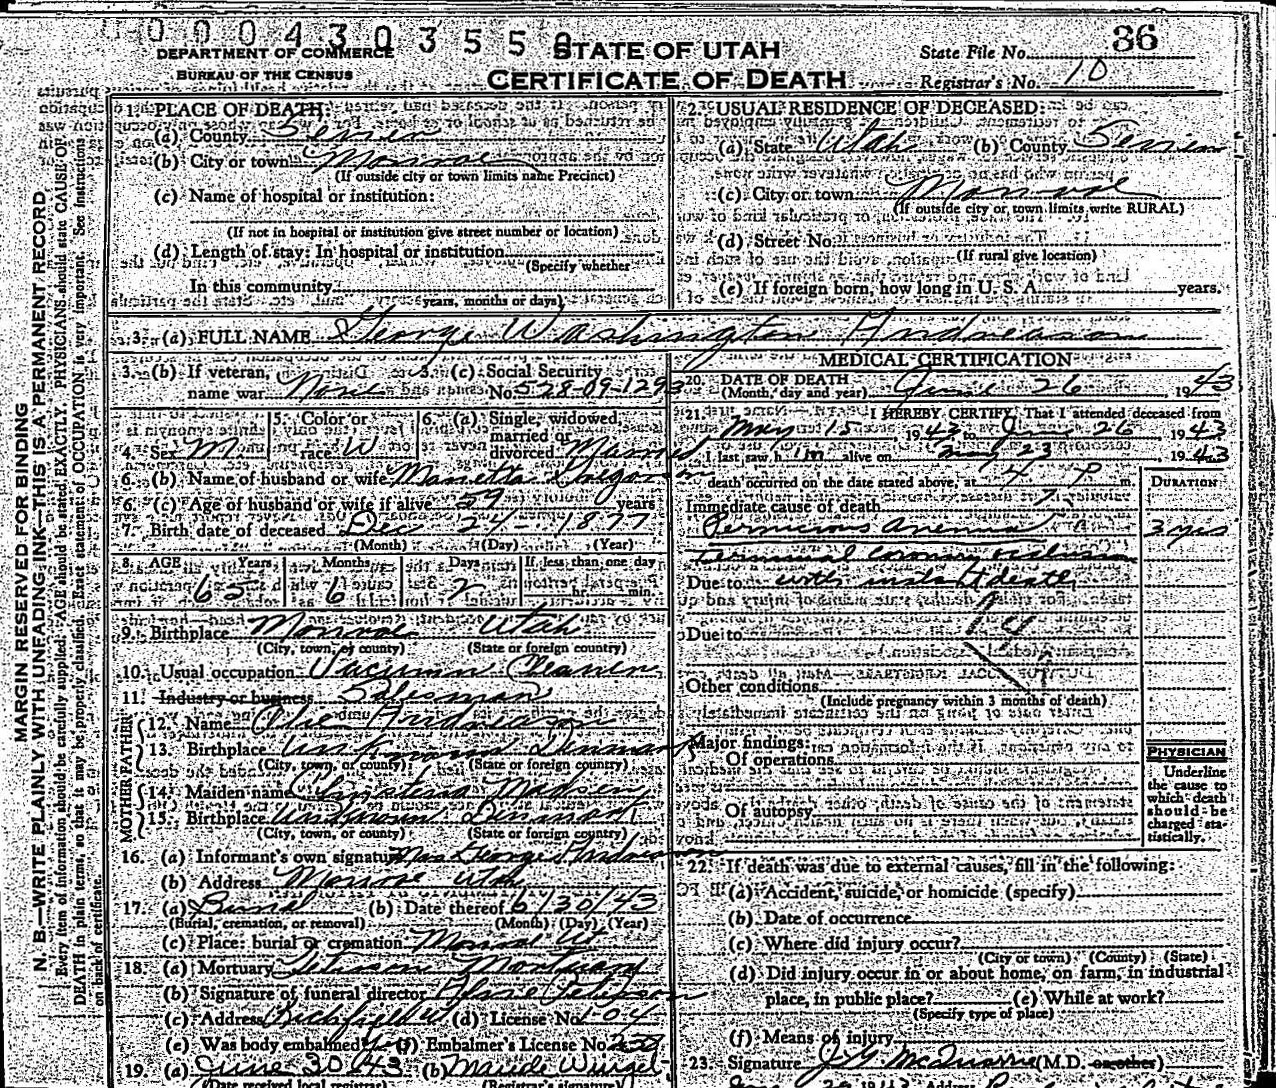 0004303550
DEPARTMENT OF COMMERCE
BUREAU OF THE CENSUS
STATE OF UTAH
CERTIFICATE OF DEATH
State File No. 36
Registrar's No. 10
MARGIN RESERVED FOR BINDING
N. B.—WRITE PLAINLY WITH UNFADING INK—THIS IS A PERMANENT RECORD
Every item of information should be carefully supplied. AGE should be stated EXACTLY. PHYSICIANS should state CAUSE OF
DEATH in plain terms, so that it may be properly classified. Exact statement of OCCUPATION is very important. See instructions
on back of certificate.
1. PLACE OF DEATH:
(a) County Sevier
(b) City or town Monroe
(If outside city or town limits name Precinct)
(c) Name of hospital or institution:
(If not in hospital or institution give street number or location)
(d) Length of stay: In hospital or institution
(Specify whether
In this community
years, months or days)
2. USUAL RESIDENCE OF DECEASED:
(a) State Utah (b) County Sevier
(c) City or town Monroe
(If outside city or town limits write RURAL)
(d) Street No.
(If rural give location)
(e) If foreign born, how long in U. S. A. years.
3. (a) FULL NAME George Washington Andreason
3. (b) If veteran, name war None
3. (c) Social Security No. 528-09-1293
4. Sex M
5. Color or race W
6. (a) Single, widowed, married or divorced Married
6. (b) Name of husband or wife Marietta
6. (c) Age of husband or wife if alive 59 years
7. Birth date of deceased Dec 24 - 1877
(Month) (Day) (Year)
8. AGE Years Months Days If less than one day
65 6 2 hr. min.
9. Birthplace Monroe Utah
(City, town, or county) (State or foreign country)
10. Usual occupation Vacuum Cleaner
11. Industry or business Salesman
FATHER
12. Name Andreason
13. Birthplace Unknown Denmark
(City, town, or county) (State or foreign country)
MOTHER
14. Maiden name Madsen
15. Birthplace Unknown Denmark
(City, town, or county) (State or foreign country)
16. (a) Informant's own signature Mrs George Andreason
(b) Address Monroe Utah
17. (a) Burial (b) Date thereof 6/30/43
(Burial, cremation, or removal) (Month) (Day) (Year)
(c) Place: burial or cremation Monroe
18. (a) Mortuary Mortuary
(b) Signature of funeral director
(c) Address Richfield U (d) License No. 104
(e) Was body embalmed? (f) Embalmer's License No.
19. (a) June 30 43 (b) Maude
(Date received local registrar) (Registrar's signature)
MEDICAL CERTIFICATION
20. DATE OF DEATH
(Month, day and year) June 26, 1943
21. I HEREBY CERTIFY, That I attended deceased from
May 15, 1942 to June 26, 1943
I last saw him alive on May 23, 1943
death occurred on the date stated above, at 4 P m.
DURATION
Immediate cause of death
Pernicious anemia 3 yrs
terminal coronary occlusion
Due to with instant death
Due to
Other conditions
(Include pregnancy within 3 months of death)
Major findings:
Of operations
Of autopsy
PHYSICIAN
Underline
the cause to
which death
should be
charged sta-
tistically.
22. If death was due to external causes, fill in the following:
(a) Accident, suicide, or homicide (specify)
(b) Date of occurrence
(c) Where did injury occur?
(City or town) (County) (State)
(d) Did injury occur in or about home, on farm, in industrial
place, in public place? (e) While at work?
(Specify type of place)
(f) Means of injury
23. Signature J G McQuarrie (M.D. or other)